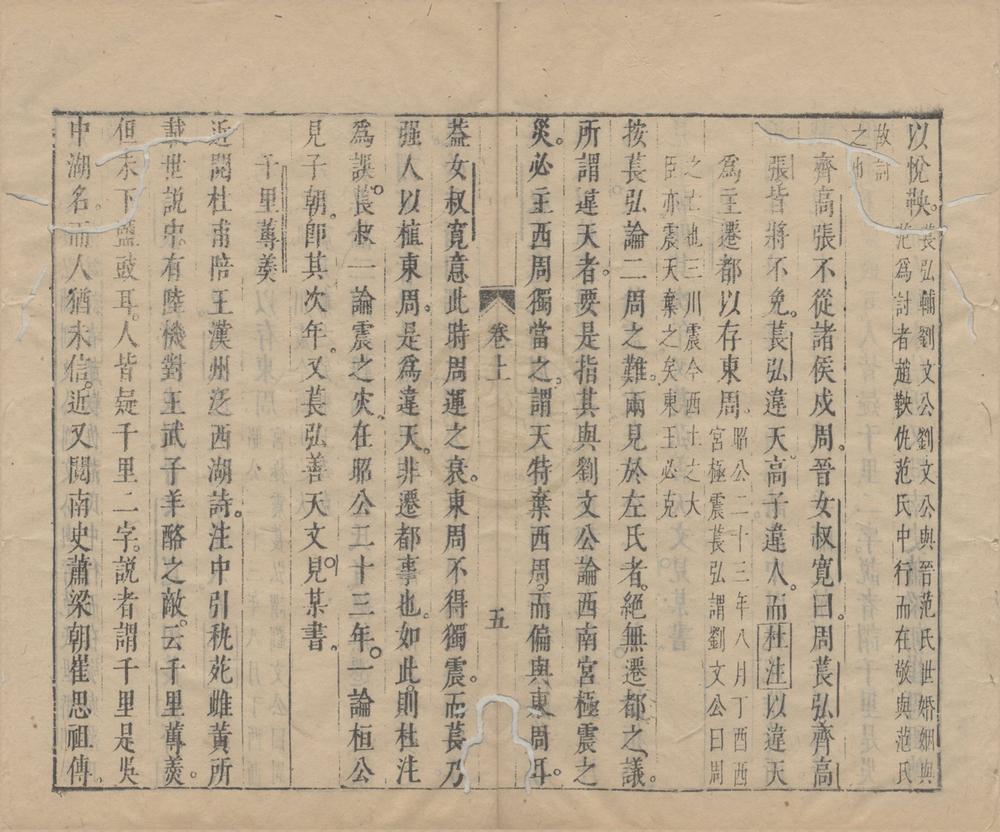 以悅鞅。萇弘輔劉文公劉文公與晉范氏世婚姻與
范爲討者趙鞅仇范氏中行而在敬與范氏
故討
之也
齊高張不從諸侯戍周。晉女叔寬曰。周萇弘齊高
張皆將不免。萇弘違天高子違人。而杜注以違天
爲主遷都以存東周。昭公二十三年八月丁酉西
宮極震萇弘謂劉文公曰周
之亡也三川震今西土之大
臣亦震天棄之矣東王必克
按萇弘論二周之難。兩見於左氏者。絕無遷都之議。
所謂違天者。要是指其與劉文公論西南宮極震之
災。必主西周獨當之。謂天特棄西周。而偏與東周耳。
卷上
五
益女叔寬意此時周運之衰。東周不得獨震。而萇乃
强人以植東周。是爲違天。非遷都事也。如此。則杜注
爲誤。萇叔一論震之災。在昭公二十三年。一論桓公
見子朝。卽其次年。又萇弘善天文見某書。
千里蓴羹
近閱杜甫陪王漢州泛西湖詩。注中引秇苑雌黃所
載世説中。有陸機對王武子羊酪之敵。云千里蓴羹。
但未下鹽豉耳。人皆疑千里二字。説者謂千里是吳
中湖名。而人猶未信。近又閱南史蕭梁朝崔思祖傳。